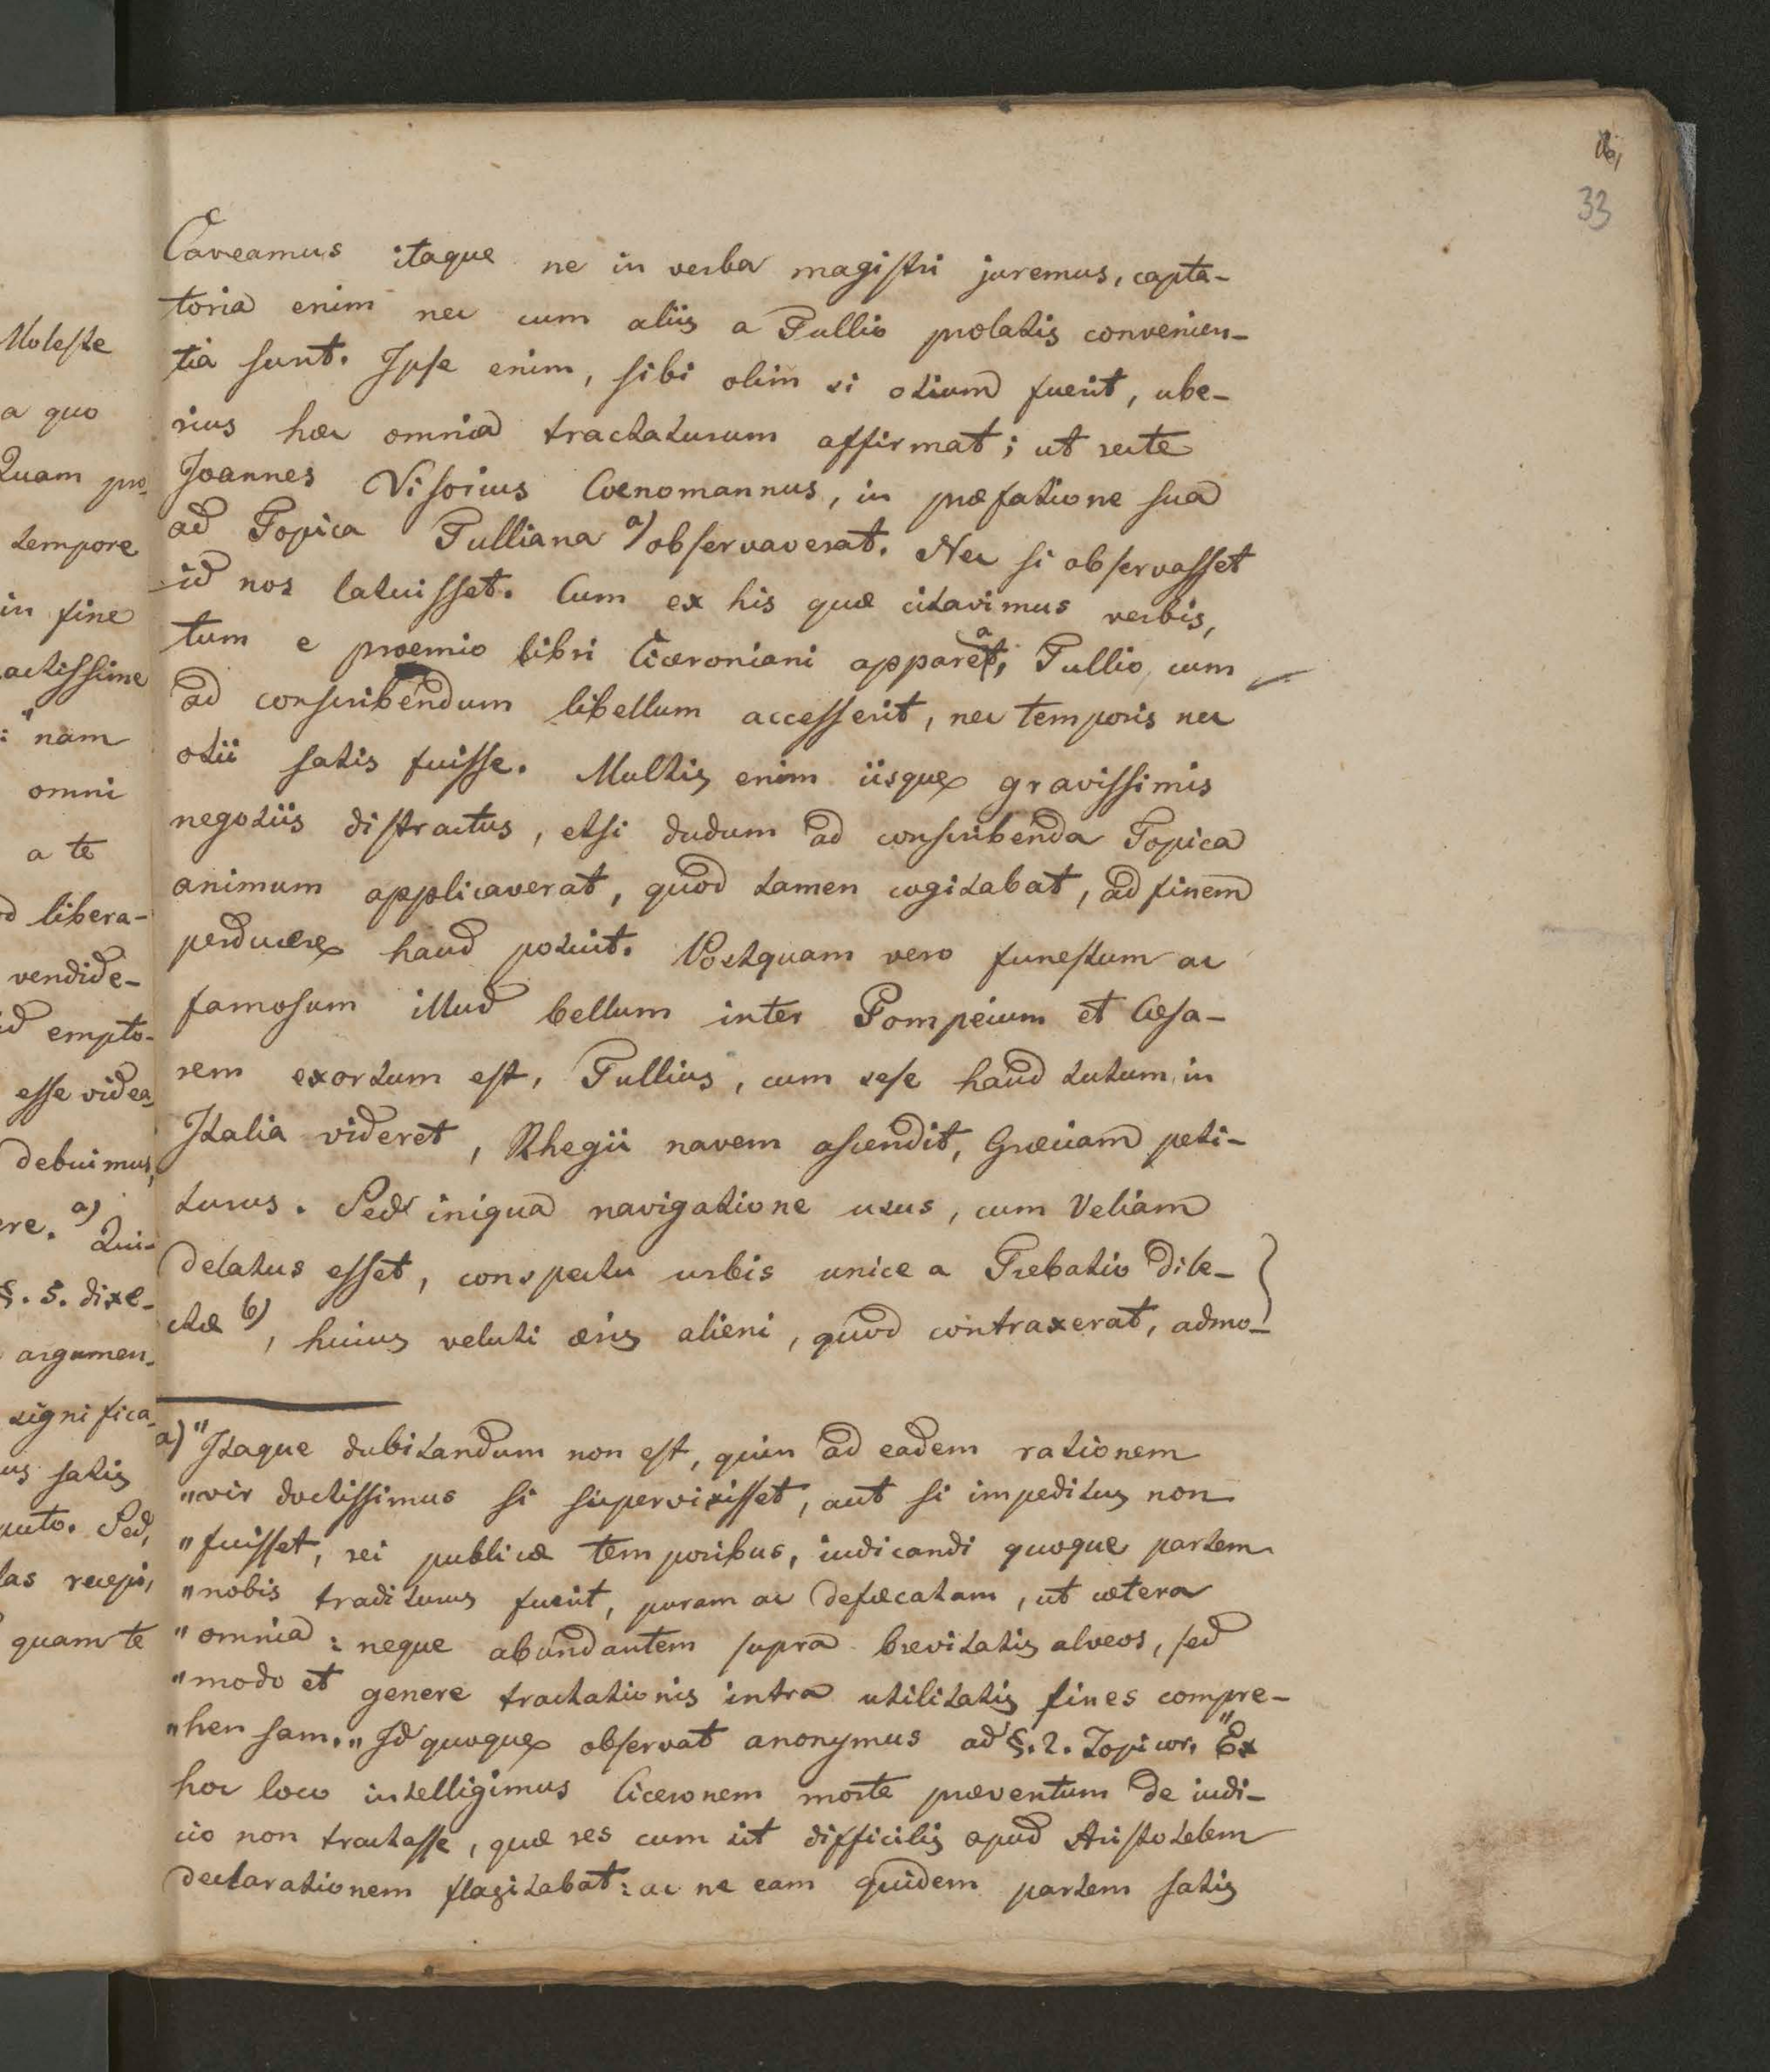 33
Caveamus itaque ne in verba magistri juremus, capta-
toria enim nec cum aliis a Tullio prolatis convenien-
tia sunt. Ipse enim, sibi olim si otium fuerit, ube-
rius hæc omnia tractaturum affirmat; ut recte
Joannes Visorius Coenomannus, in præfatione sua
ad Topica Tulliana a) observaverat. Nec si observasset
id nos latuisset. Cum ex his quæ citavimus verbis,
tum e proemio libri Ciceroniani appareat, Tullio, cum
ad conscribendum libellum accesserit, nec temporis nec
otii satis fuisse. Multis enim iisque gravissimis
negotiis distractus, etsi dudum ad conscribenda Topica
animum applicaverat, quod tamen cogitabat, ad finem
perducere haud potuit. Postquam vero funestum ac
famosum illud bellum inter Pompeium et Cæsa-
rem exortum est, Tullius, cum sese haud tutum in
Italia videret, Rhegii navem ascendit, Græciam peti-
turus. Sed iniqua navigatione usus, cum Veliam
delatus esset, conspectu urbis unice a Trebatio dile-
ctæ b), huius veluti æris alieni, quod contraxerat, admo-
a) "Itaque dubitandum non est, quin ad eadem rationem
"vir doctissimus si supervixisset, aut si impeditus non
"fuisset, rei publicæ temporibus, iudicandi quoque partem
"nobis traditurus fuerit, puram ac defæcatam, ut cætera
"omnia: neque abundantem supra brevitatis alveos, sed
"modo et genere tractationis intra utilitatis fines compre-
"hensam." Id quoque observat anonymus ad §. 2. Topicor. "Ex
hoc loco intelligimus Ciceronem morte præventum de iudi-
cio non tractasse, quæ res cum sit difficilis apud Aristotelem
declarationem flagitabat: ac ne eam quidem partem satis
Moleste
a quo
Quam pro-
tempore
in fine
actissime
: "nam
omni
a te
libera-
vendide-
id empto-
esse videa
debuimus,
ere. a) Qui-
§. 5. dixe-
argumen-
significa-
us satis
puto. Sed,
las recepi,
quam te